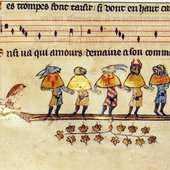 es trompes font taisir si vont en haut ca
nsi va qui amours demaine a son comm